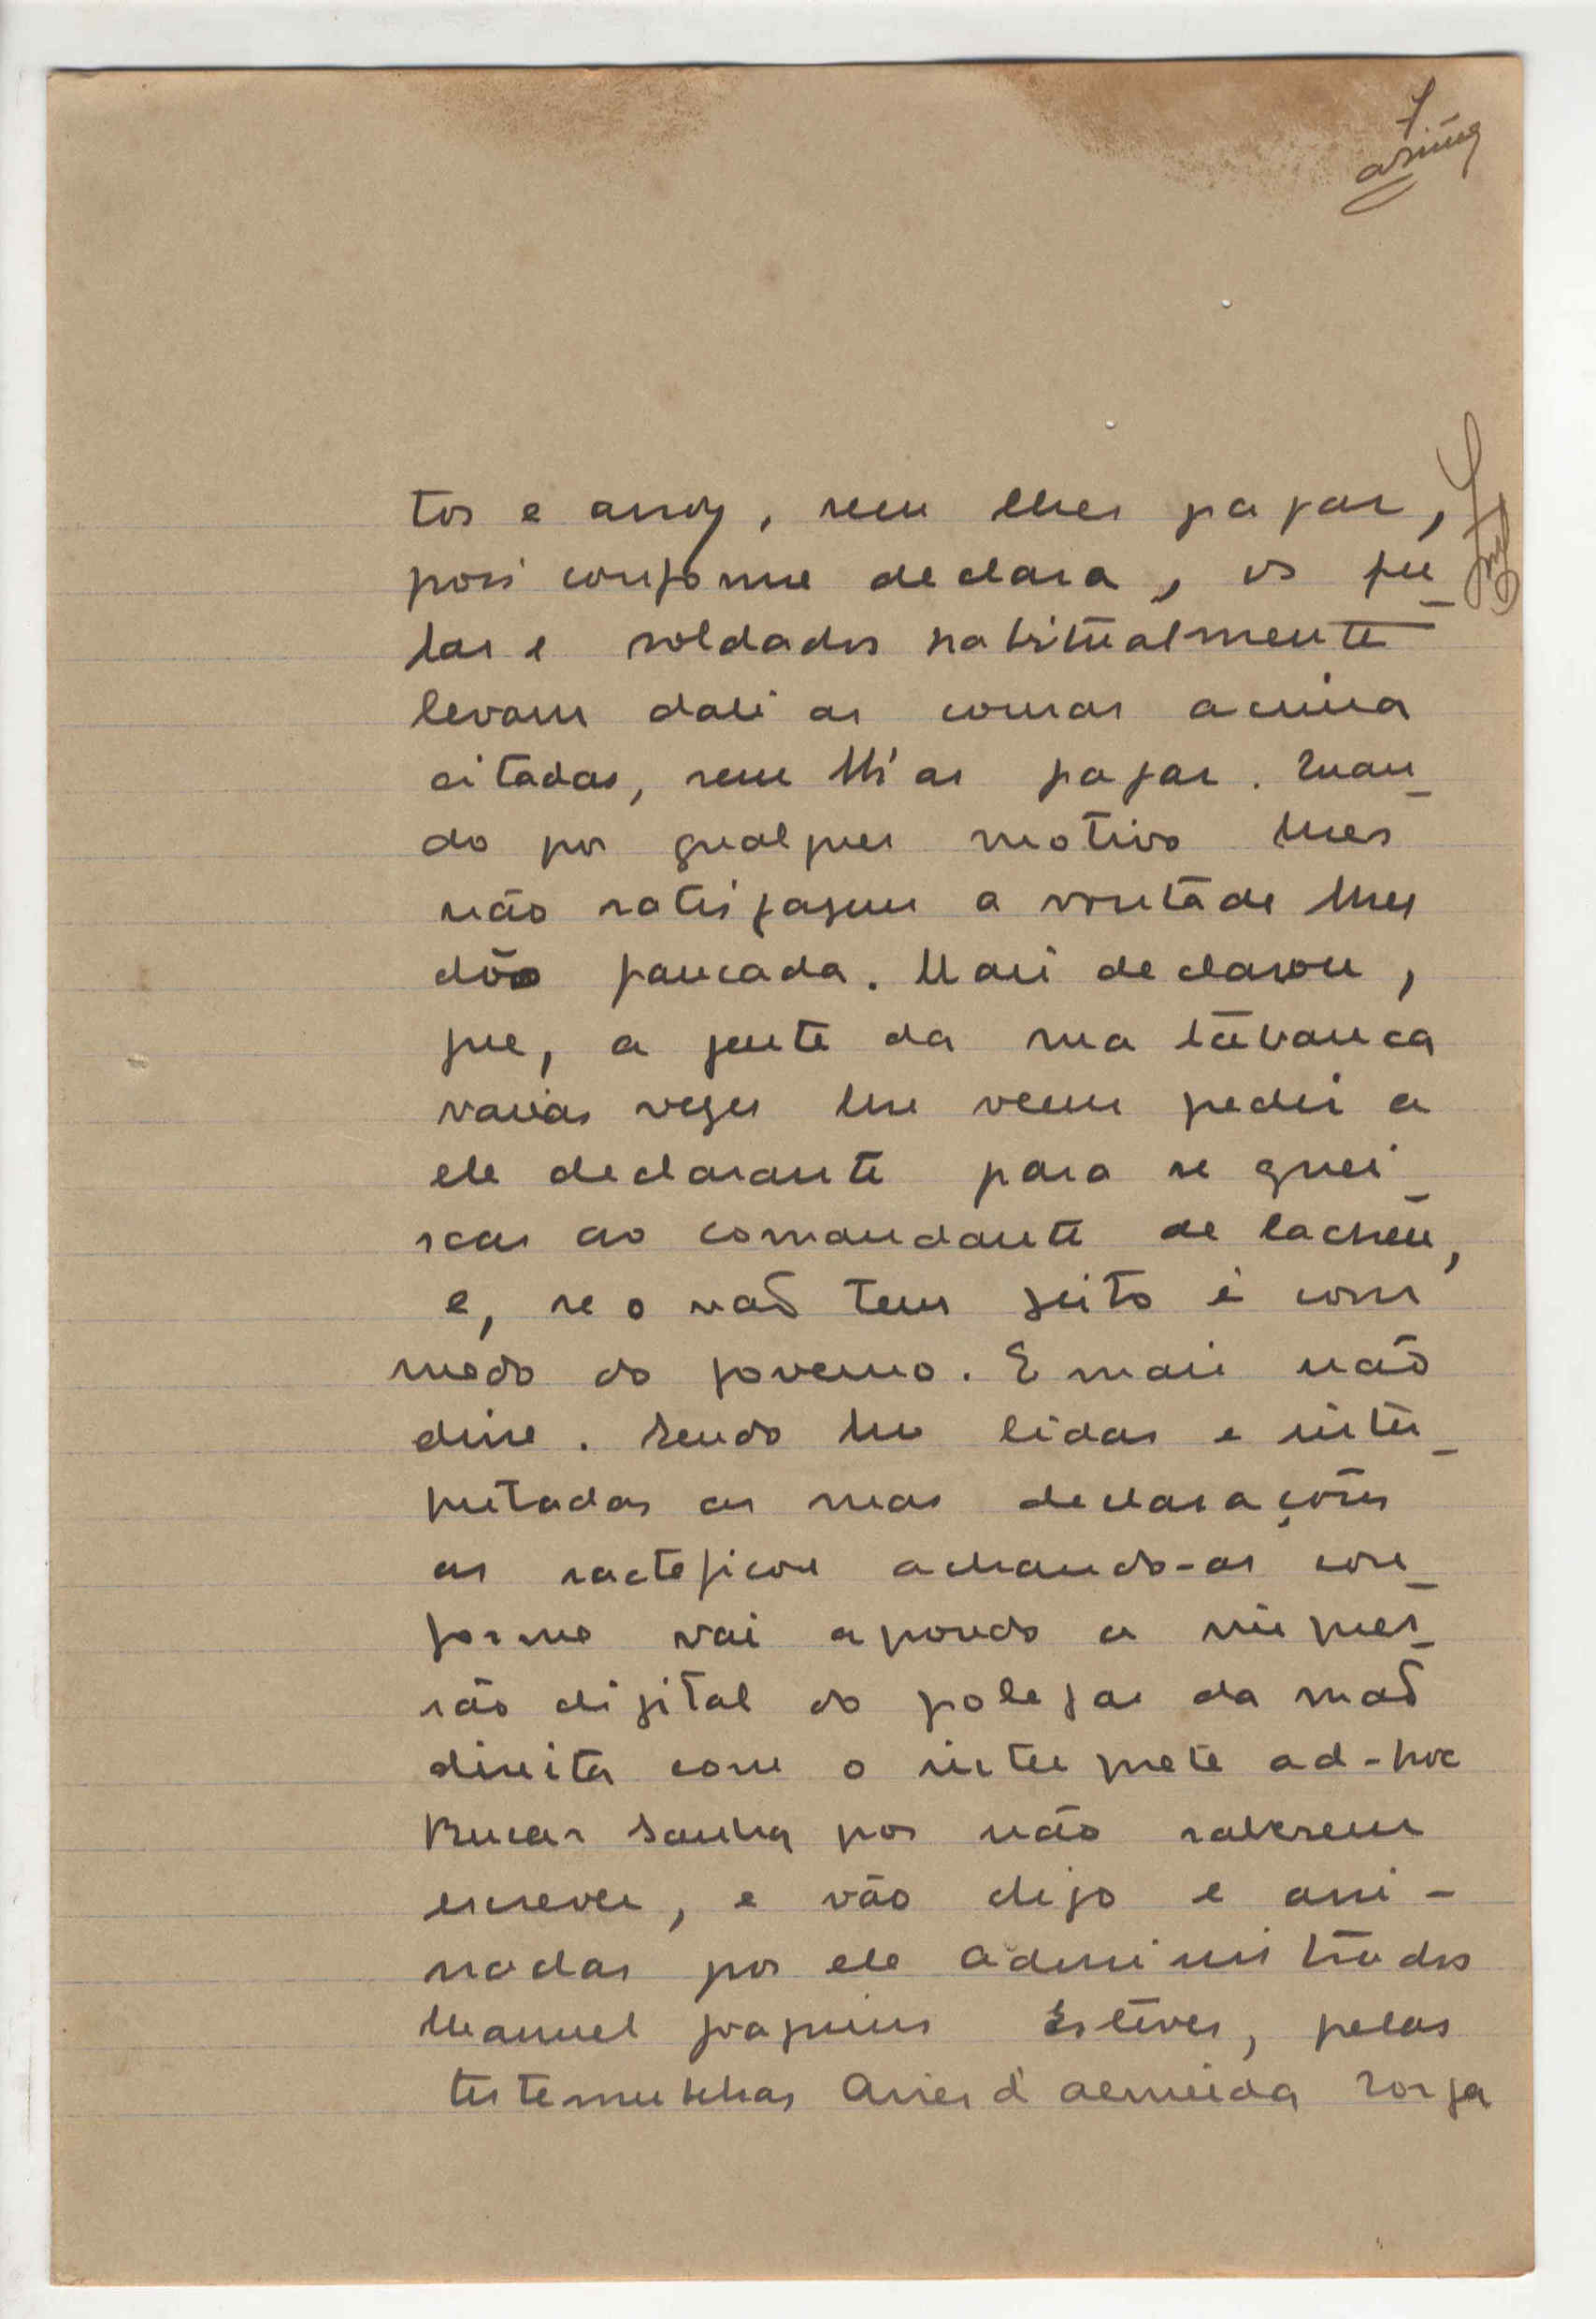 7
tos e arroz, sem lhes pagar,
pois conforme declara, os fu-
las e soldados habitualmente
levam dali as cousas acima
citadas, sem lh'as pagar. Quan-
do por qualquer motivo lhes
não satisfazem a vontade lhes
dão pancada. Mais declarou,
que, a gente da sua tabanca
varias vezes lhe veem pedir a
ele declarante para se quei-
xar ao comandante de Cacheu,
e, se o não tem feito é com
medo do governo. E mais não
disse. Sendo lhe lidas e inter-
pretadas as suas declarações
as racteficou achando-as con-
forme vai apondo a impres-
são digital do polegar da mão
direita com o interprete ad-hoc
Bucar Sanha por não saberem
escrever, e vão digo e assi-
nadas por ele Administrador
Manuel Joaquim Esteves, pelas
testemunhas Aires d'Almeida